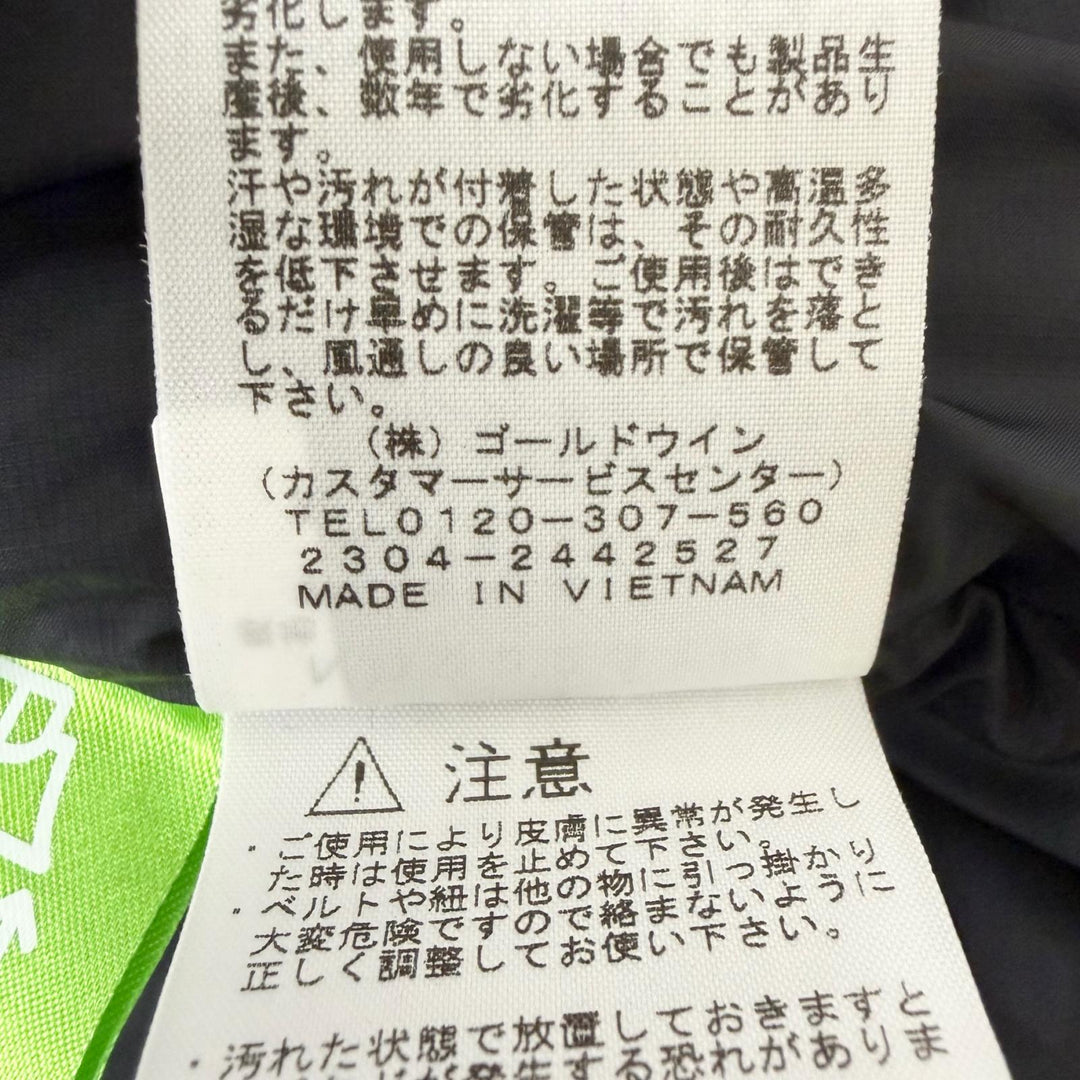 劣化します。
また、使用しない場合でも製品生
産後、数年で劣化することがあり
ます。
汗や汚れが付着した状態や高温多
湿な環境での保管は、その耐久性
を低下させます。ご使用後はでき
るだけ早めに洗濯等で汚れを落と
し、風通しの良い場所で保管して
下さい。
(株)ゴールドウイン
(カスタマーサービスセンター)
TEL0120-307-560
2304-2442527
MADE IN VIETNAM
注意
・ご使用により皮膚に異常が発生し
た時は使用を止めて下さい。
・ベルトや紐は他の物に引っ掛かり
大変危険ですので絡まないように
正しく調整してお使い下さい。
・汚れた状態で放置しておきますと
が発生する恐れがありま